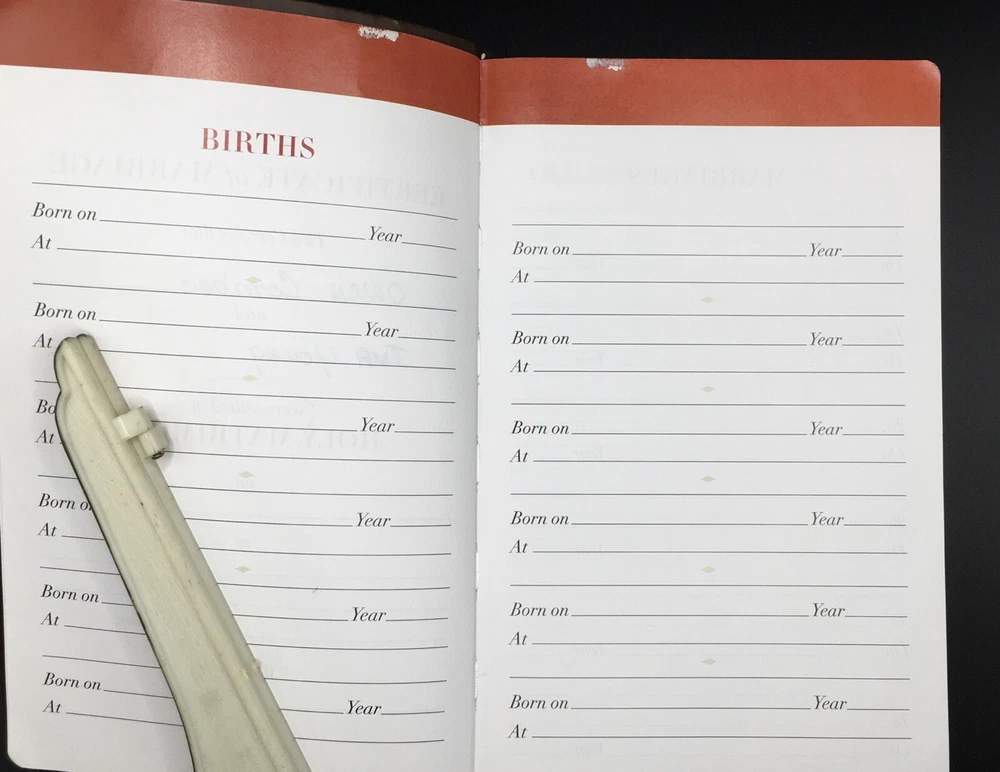 BIRTHS
Born on Year
At
Born on Year
At
Bo Year
At
Born o Year
At
Born on Year
At
Born on Year
At
Born on Year
At
Born on Year
At
Born on Year
At
Born on Year
At
Born on Year
At
Born on Year
At